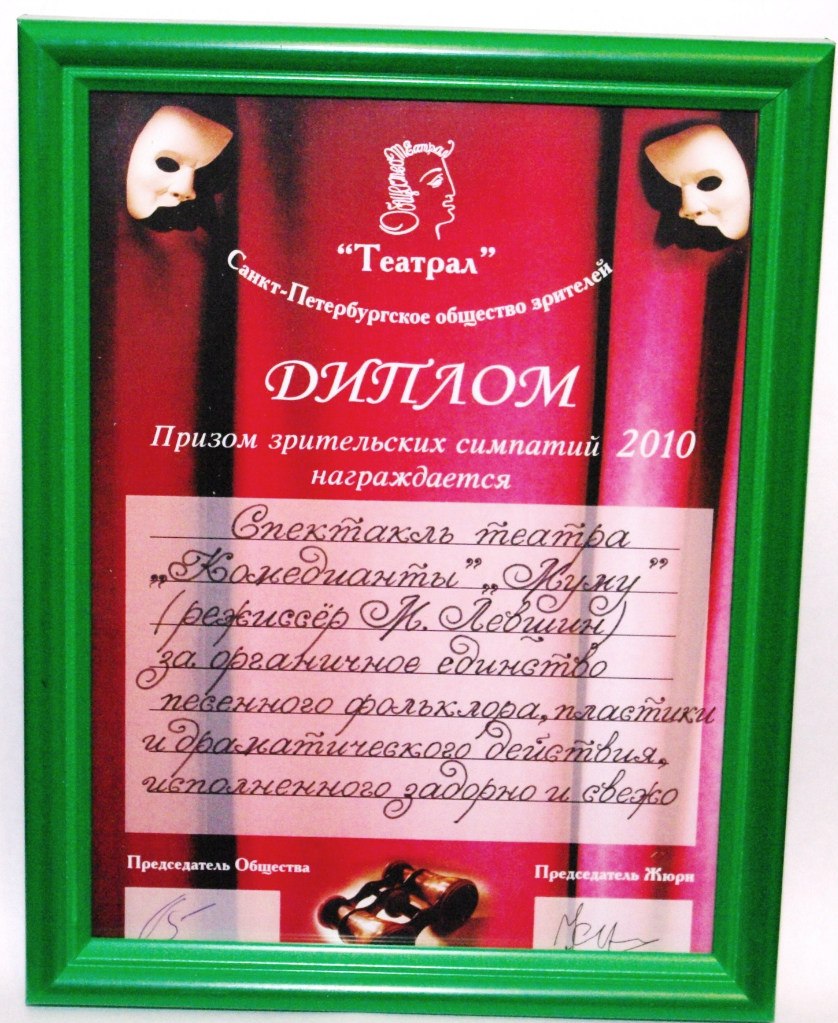 Общество Театрал
“Театрал”
Санкт-Петербургское общество зрителей
ДИПЛОМ
Призом зрительских симпатий 2010
награждается
Спектакль театра
„Комедианты” „Муму”
(режиссёр М. Левшин)
за органичное единство
песенного фольклора, пластики
и драматического действия,
исполненного задорно и свежо
Председатель Общества
Председатель Жюри